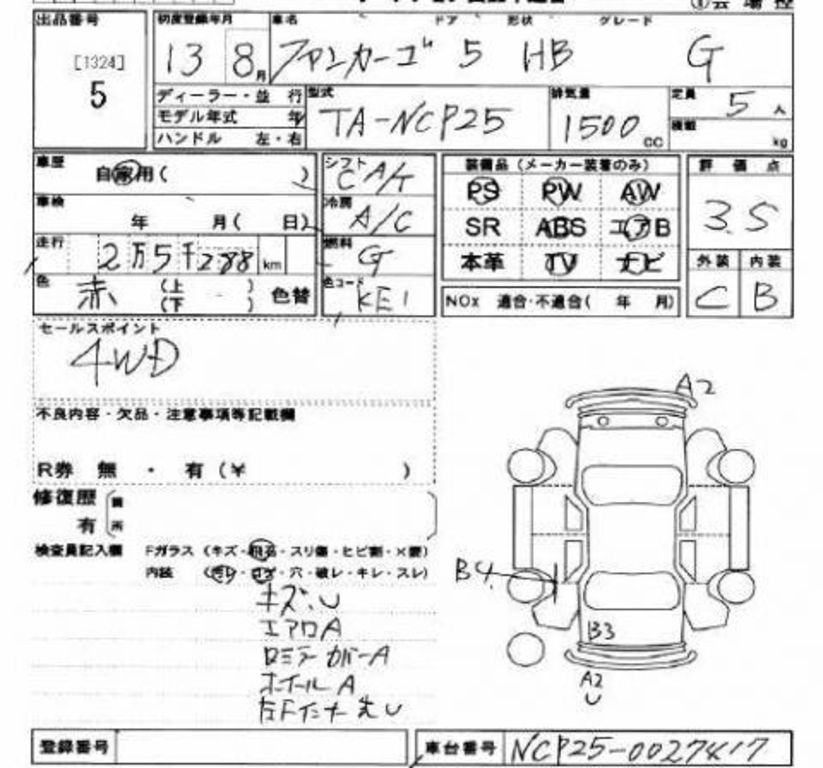 出品番号 初度登録年月 車名 ドア 形状 グレード
[1324]
5
13 8月 ファンカーゴ 5 HB G
ディーラー・並 行
モデル年式 年
ハンドル 左・右
型式 TA-NCP25
排気量 1500 CC
定員 5 人
積載 kg
車歴 自家用( )
シフト CA/T
装備品 (メーカー装着のみ)
評 価 点
3.5
車検 年 月( 日)
冷房 A/C
PS PW AW
SR ABS エアB
本革 TV ナビ
走行 2万5千288 km
燃料 G
外装 内装
C B
色 赤 (上 )
(下 ) 色替
色コード KE1
NOx 適合・不適合( 年 月)
セールスポイント
4WD
不良内容・欠品・注意事項等記載欄
R券 無 ・ 有 (¥ )
修復歴
有
検査員記入欄 Fガラス (キズ・飛石・スリ傷・ヒビ割・×要)
内装 (汚レ・コゲ・穴・破レ・キレ・スレ)
キズ、U
エアロA
ロミラーカバーA
ホイールA
A2
B4
B3
A2
U
登録番号
車台番号 NCP25-0027417